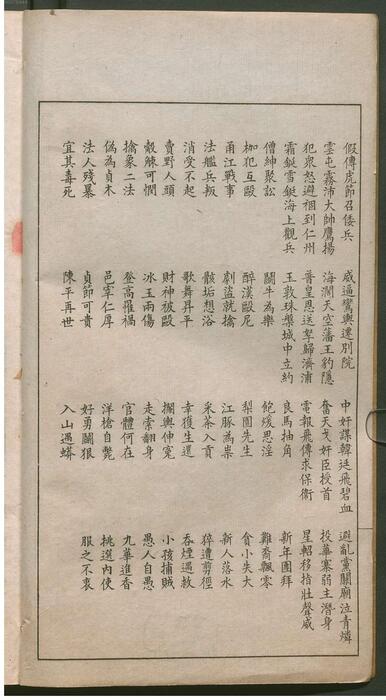 假傳虎節召倭兵 威逼鸞輿遷別院 中奸謀韓廷飛碧血 避亂黨關廟泣青燐
雲屯霧沛大帥鷹揚 海濶天空藩王豹隱 奮天戈奸臣授首 投華寨弱主潛身
犯衆怒避徊到仁州 普皇恩送孥歸濟浦 電報飛傳求保衛 星軺移指壯聲威
霜鋋雪鋋海上觀兵 玉敦珠槃城中立約 良馬抽角 新年團拜
僧紳聚訟 鬭牛為樂 飽煖思淫 雞喬飄零
枷犯互毆 醉漢毆尼 梨園先生 貪小失大
甬江戰事 劇盜就擒 江豚為祟 新人落水
法艦兵叛 骸垢想浴 采茶入貢 猝遭剪徑
消受不起 歌舞昇平 幸獲生還 吞煙遇救
賣野人頭 財神被毆 攔輿伸寃 小孩捕賊
觳觫可憫 冰玉兩傷 走索翻身 愚人自愚
擒象二法 登高罹禍 官體何在 九華進香
偽為貞木 邑宰仁厚 洋槍自斃 挑選內使
法人殘暴 貞節可貴 好勇鬭狠 服之不衷
宜其毒死 陳平再世 入山遇蟒